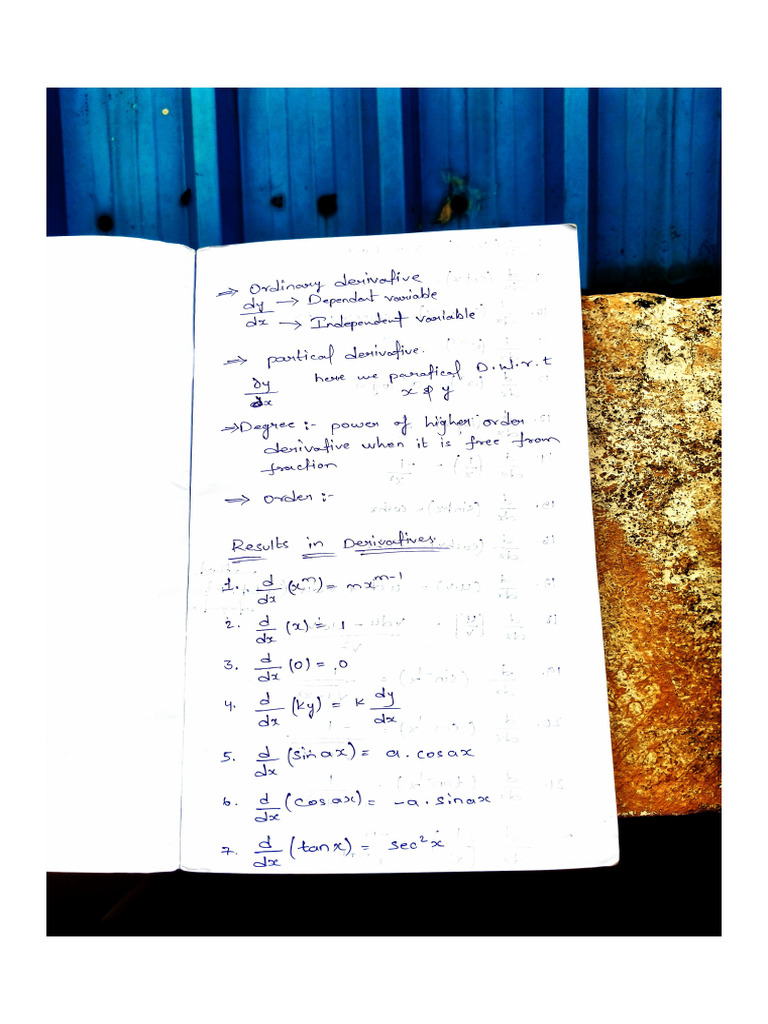 ⇒ Ordinary derivative
dy/dx → Dependent variable
→ Independent variable
⇒ partical derivative.
∂y/∂x here we paratical D.w.r.t
x & y
⇒ Degree :- power of higher order
derivative when it is free from
fraction
⇒ order :-
Results in Derivatives
1. d/dx (xⁿ) = nxⁿ⁻¹
2. d/dx (x) = 1
3. d/dx (0) = 0
4. d/dx (ky) = k dy/dx
5. d/dx (sin ax) = a. cos ax
6. d/dx (cos ax) = -a. sin ax
7. d/dx (tan x) = sec² x